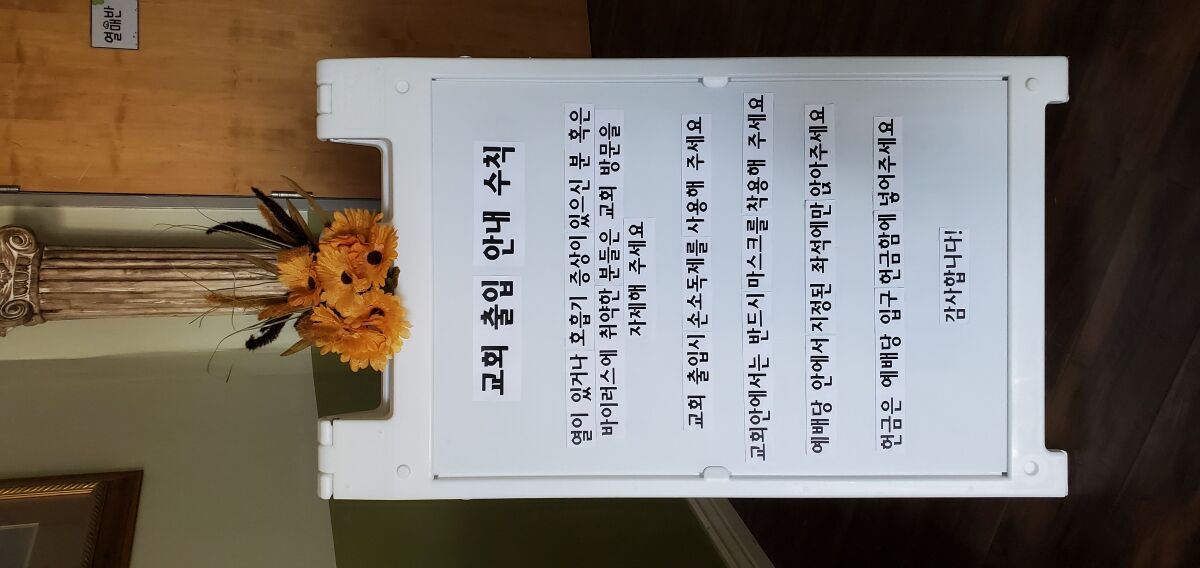 교회 출입 안내 수칙
열이 있거나 호흡기 증상이 있으신 분 혹은
바이러스에 취약한 분들은 교회 방문을
자제해 주세요
교회 출입시 손소독제를 사용해 주세요
교회안에서는 반드시 마스크를 착용해 주세요
예배당 안에서 지정된 좌석에만 앉아주세요
헌금은 예배당 입구 헌금함에 넣어주세요
감사합니다!
열매반